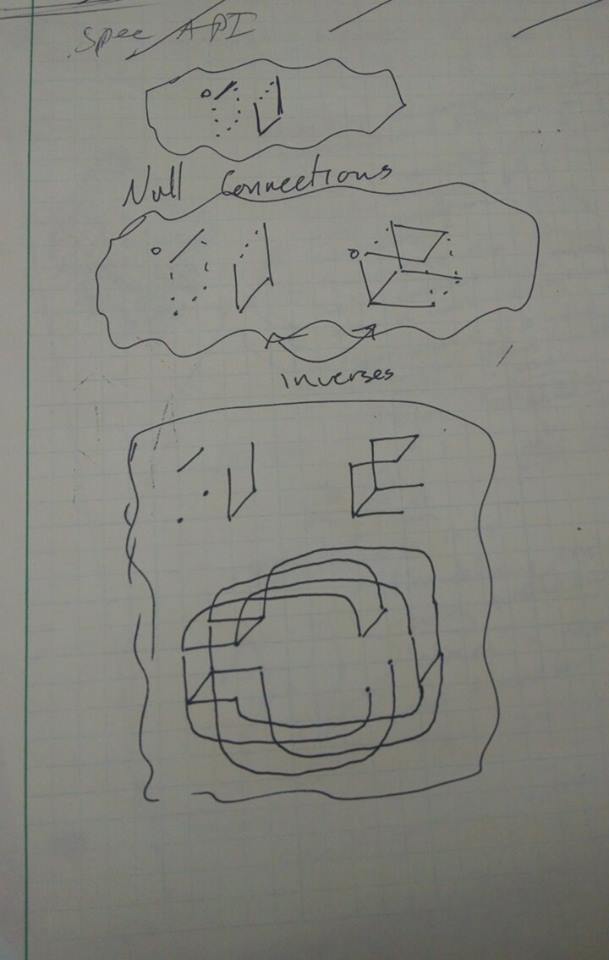 Spec API
Null Connections
Inverses